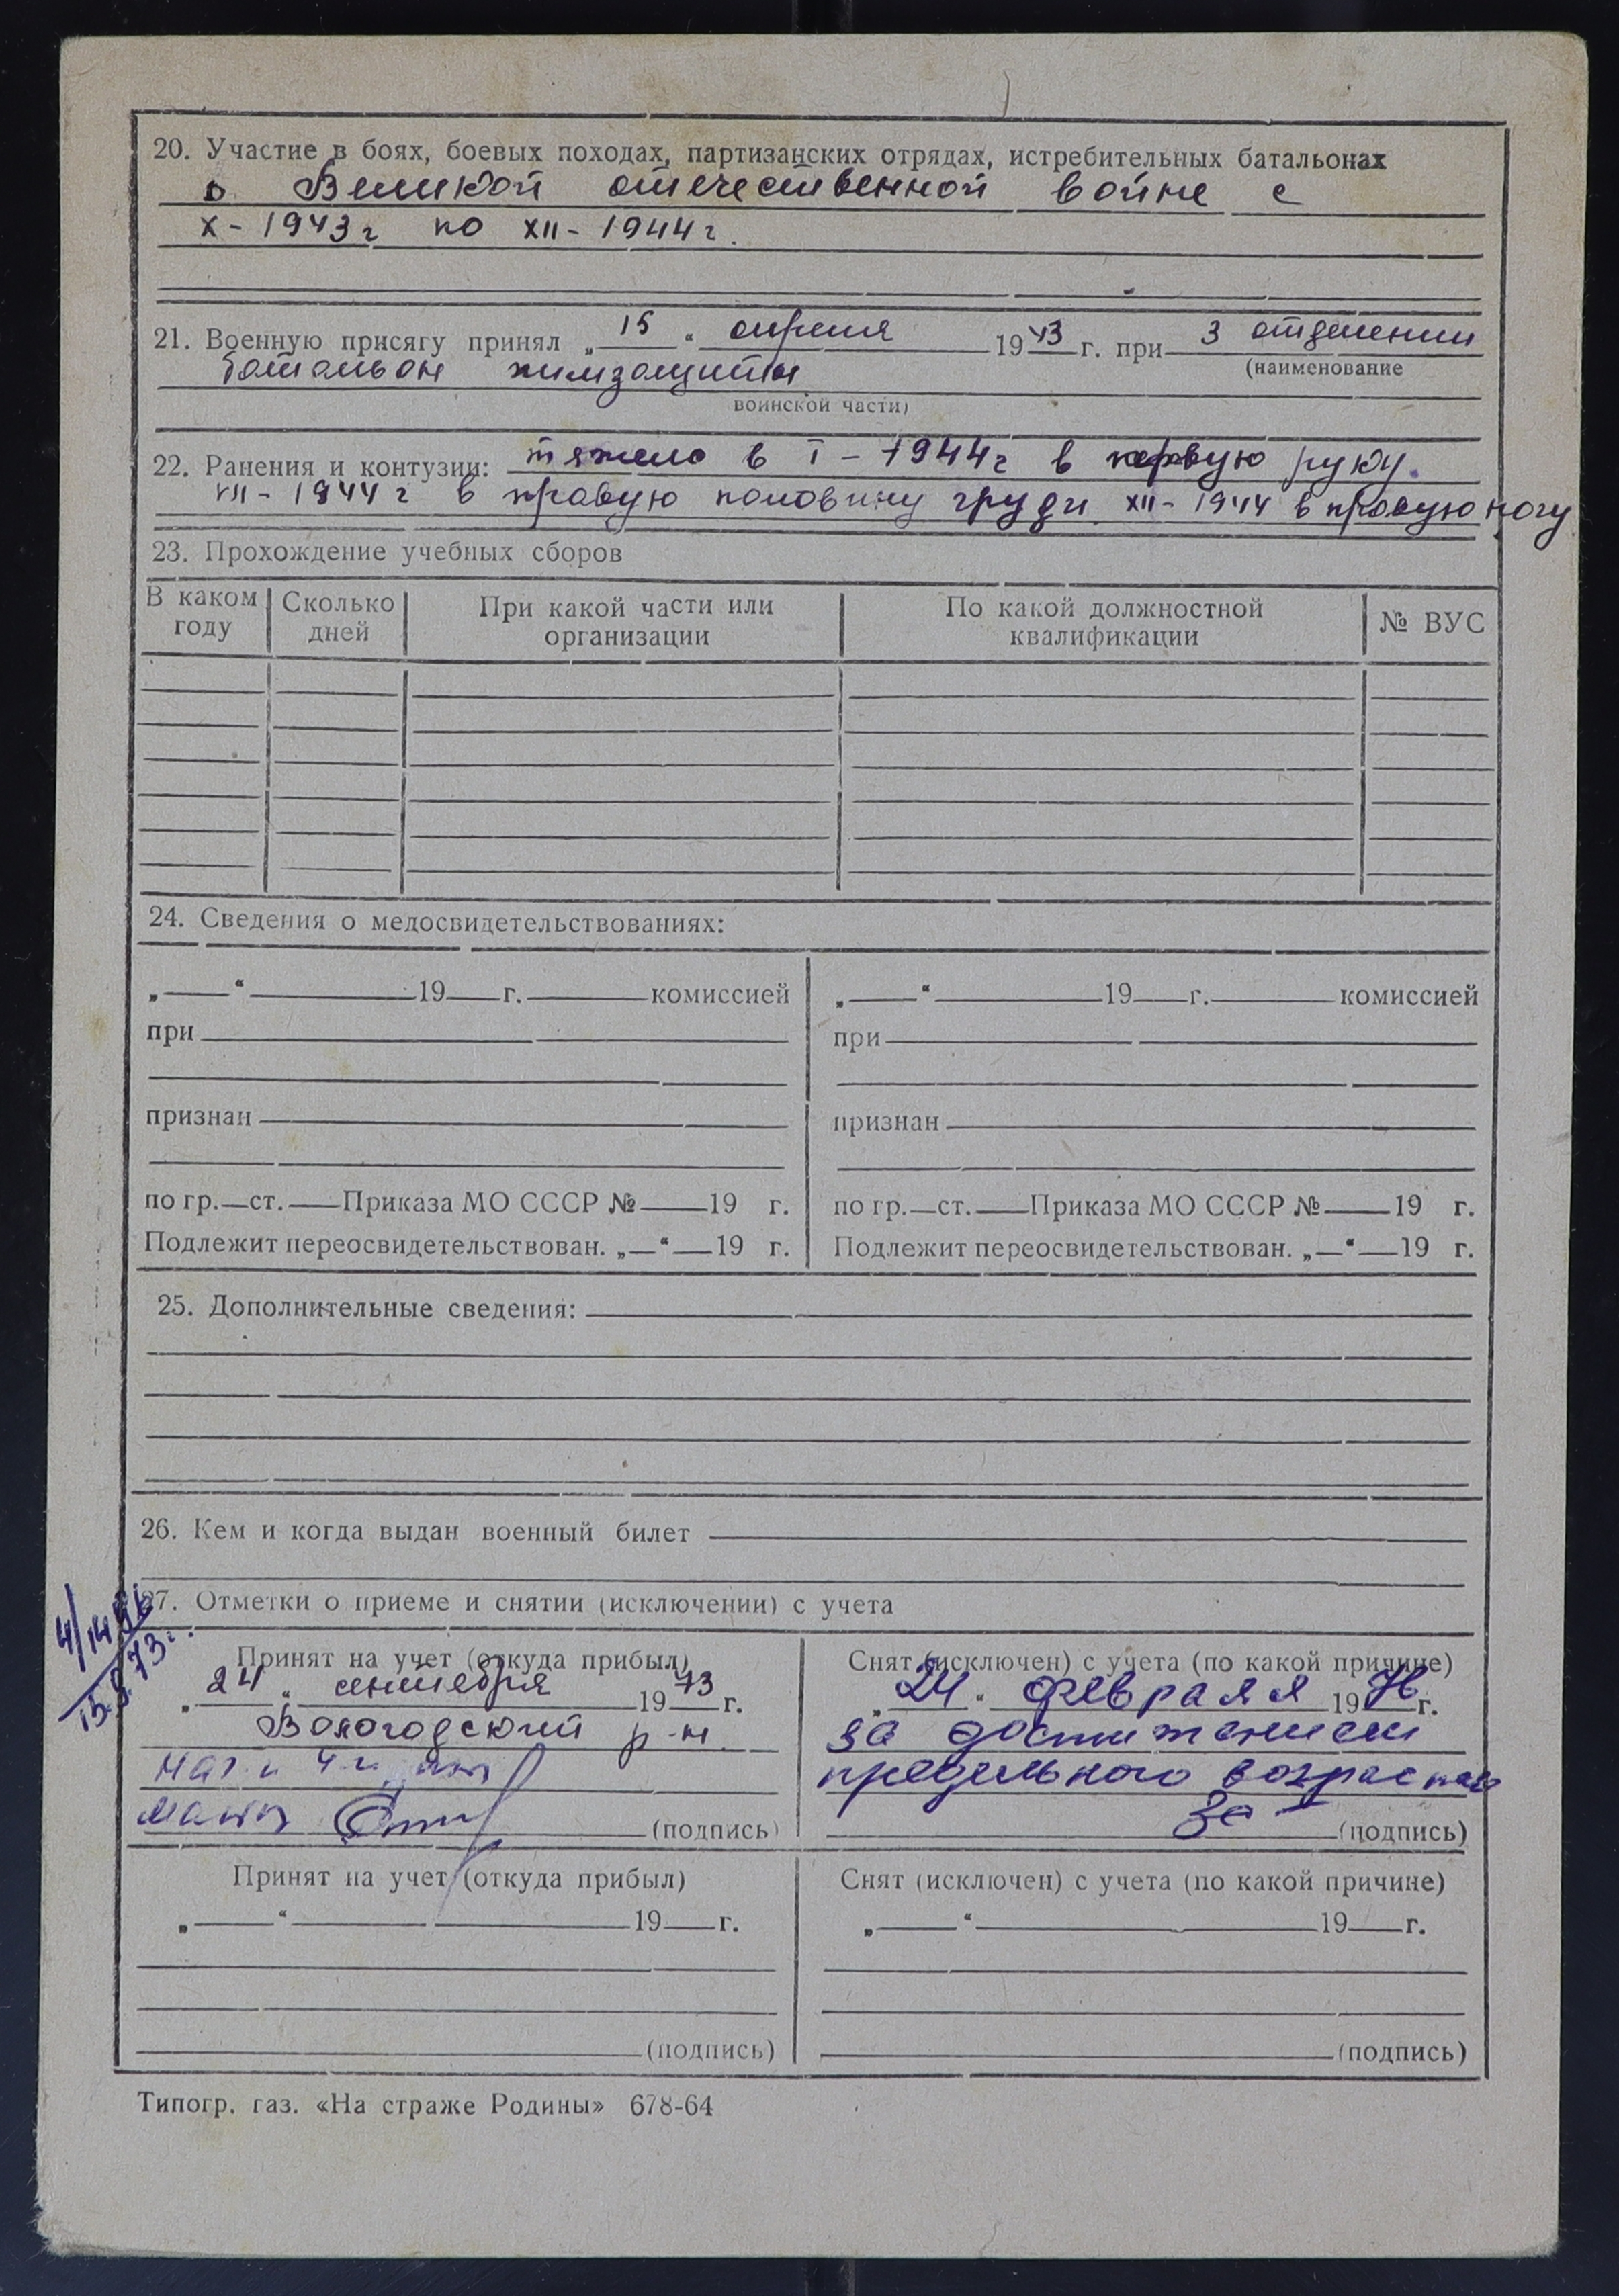 20. Участие в боях, боевых походах, партизанских отрядах, истребительных батальонах
в Великой отечественной войне с
X - 1943 г по XII - 1944 г.
21. Военную присягу принял „ 15 “ апреля 1943 г. при 3 отделении
(наименование
батальон химзащиты
воинской части)
22. Ранения и контузии: тяжело в I - 1944 г в правую руку.
VII - 1944 г в правую половину груди XII - 1944 в правую ногу
23. Прохождение учебных сборов
В каком году Сколько дней При какой части или организации По какой должностной квалификации № ВУС
24. Сведения о медосвидетельствованиях:
„ “ 19 г. комиссией „ “ 19 г. комиссией
при при
признан признан
по гр. ст. Приказа МО СССР № 19 г. по гр. ст. Приказа МО СССР № 19 г.
Подлежит переосвидетельствован. „ “ 19 г. Подлежит переосвидетельствован. „ “ 19 г.
25. Дополнительные сведения:
26. Кем и когда выдан военный билет
27. Отметки о приеме и снятии (исключении) с учета
15.9.73 г.
Принят на учет (откуда прибыл) Снят (исключен) с учета (по какой причине)
„ 24 “ сентября 1973 г. „ 24 “ февраля 1976 г.
Вологодский р-н за достижением
предельного возраста
(подпись) (подпись)
Принят на учет (откуда прибыл) Снят (исключен) с учета (по какой причине)
„ “ 19 г. „ “ 19 г.
(подпись) (подпись)
Типогр. газ. «На страже Родины» 678-64